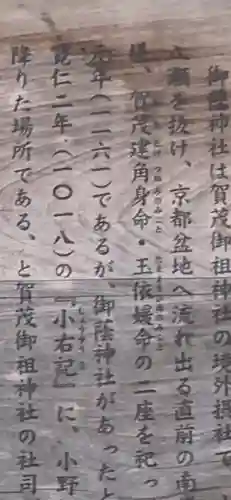 御蔭神社は賀茂御祖神社の境外摂社で
瀬を抜け、京都盆地へ流れ出る直前の南
賀茂建角身命・玉依媛命の二座を祀っ
元年(一一六一)であるが、御蔭神社があったと
寛仁二年(一〇一八)の『小右記』に、小野
降りた場所である、と賀茂御祖神社の社司